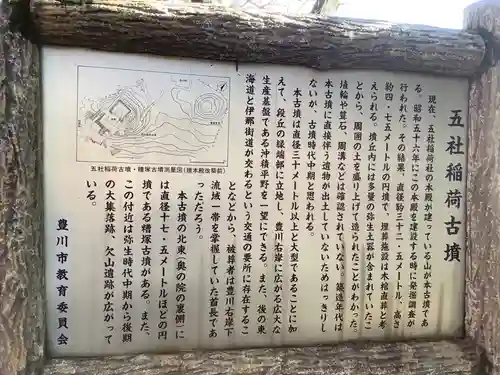 五社稲荷古墳
現在、五社稲荷社の本殿が建っている山が本古墳であ
る。昭和五十六年にこの本殿を建設する時に発掘調査が
行われた。その結果、直径約三十二・五メートル、高さ
約四・七五メートルの円墳で、埋葬施設は木棺直葬と考
えられる。墳丘内には多量の弥生土器が含まれていたこ
とから、周囲の土を盛り上げて造られたことがわかった。
埴輪や葺石、周溝などは確認されていない。築造年代は
本古墳に直接伴う遺物が出土していないためはっきりし
ないが、古墳時代中期と思われる。
本古墳は直径三十メートル以上と大型であることに加
えて、段丘の縁端部に立地し、豊川右岸に広がる広大な
生産基盤である沖積平野を一望にできる。また、後の東
海道と伊那街道が交わるという交通の要所に存在するこ
となどから、被葬者は豊川右岸下
流域一帯を掌握していた首長であ
っただろう。
本古墳の北東、奥の院の裏側に
は直径十七・五メートルほどの円
墳である糟塚古墳がある。また、
この付近は弥生時代中期から後期
の大集落跡、欠山遺跡が広がって
いる。
豊川市教育委員会
五社稲荷古墳・糟塚古墳測量図(現本殿改築前)